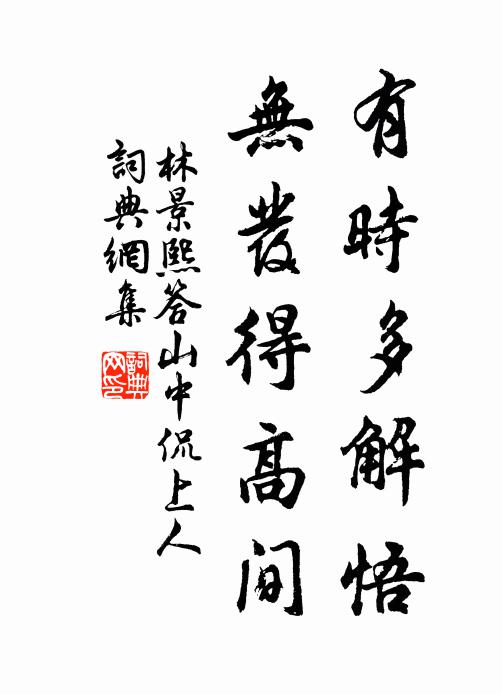 有時多解悟
無發得高間
林景熙答山中侃上人
詞典網集
詞典網印